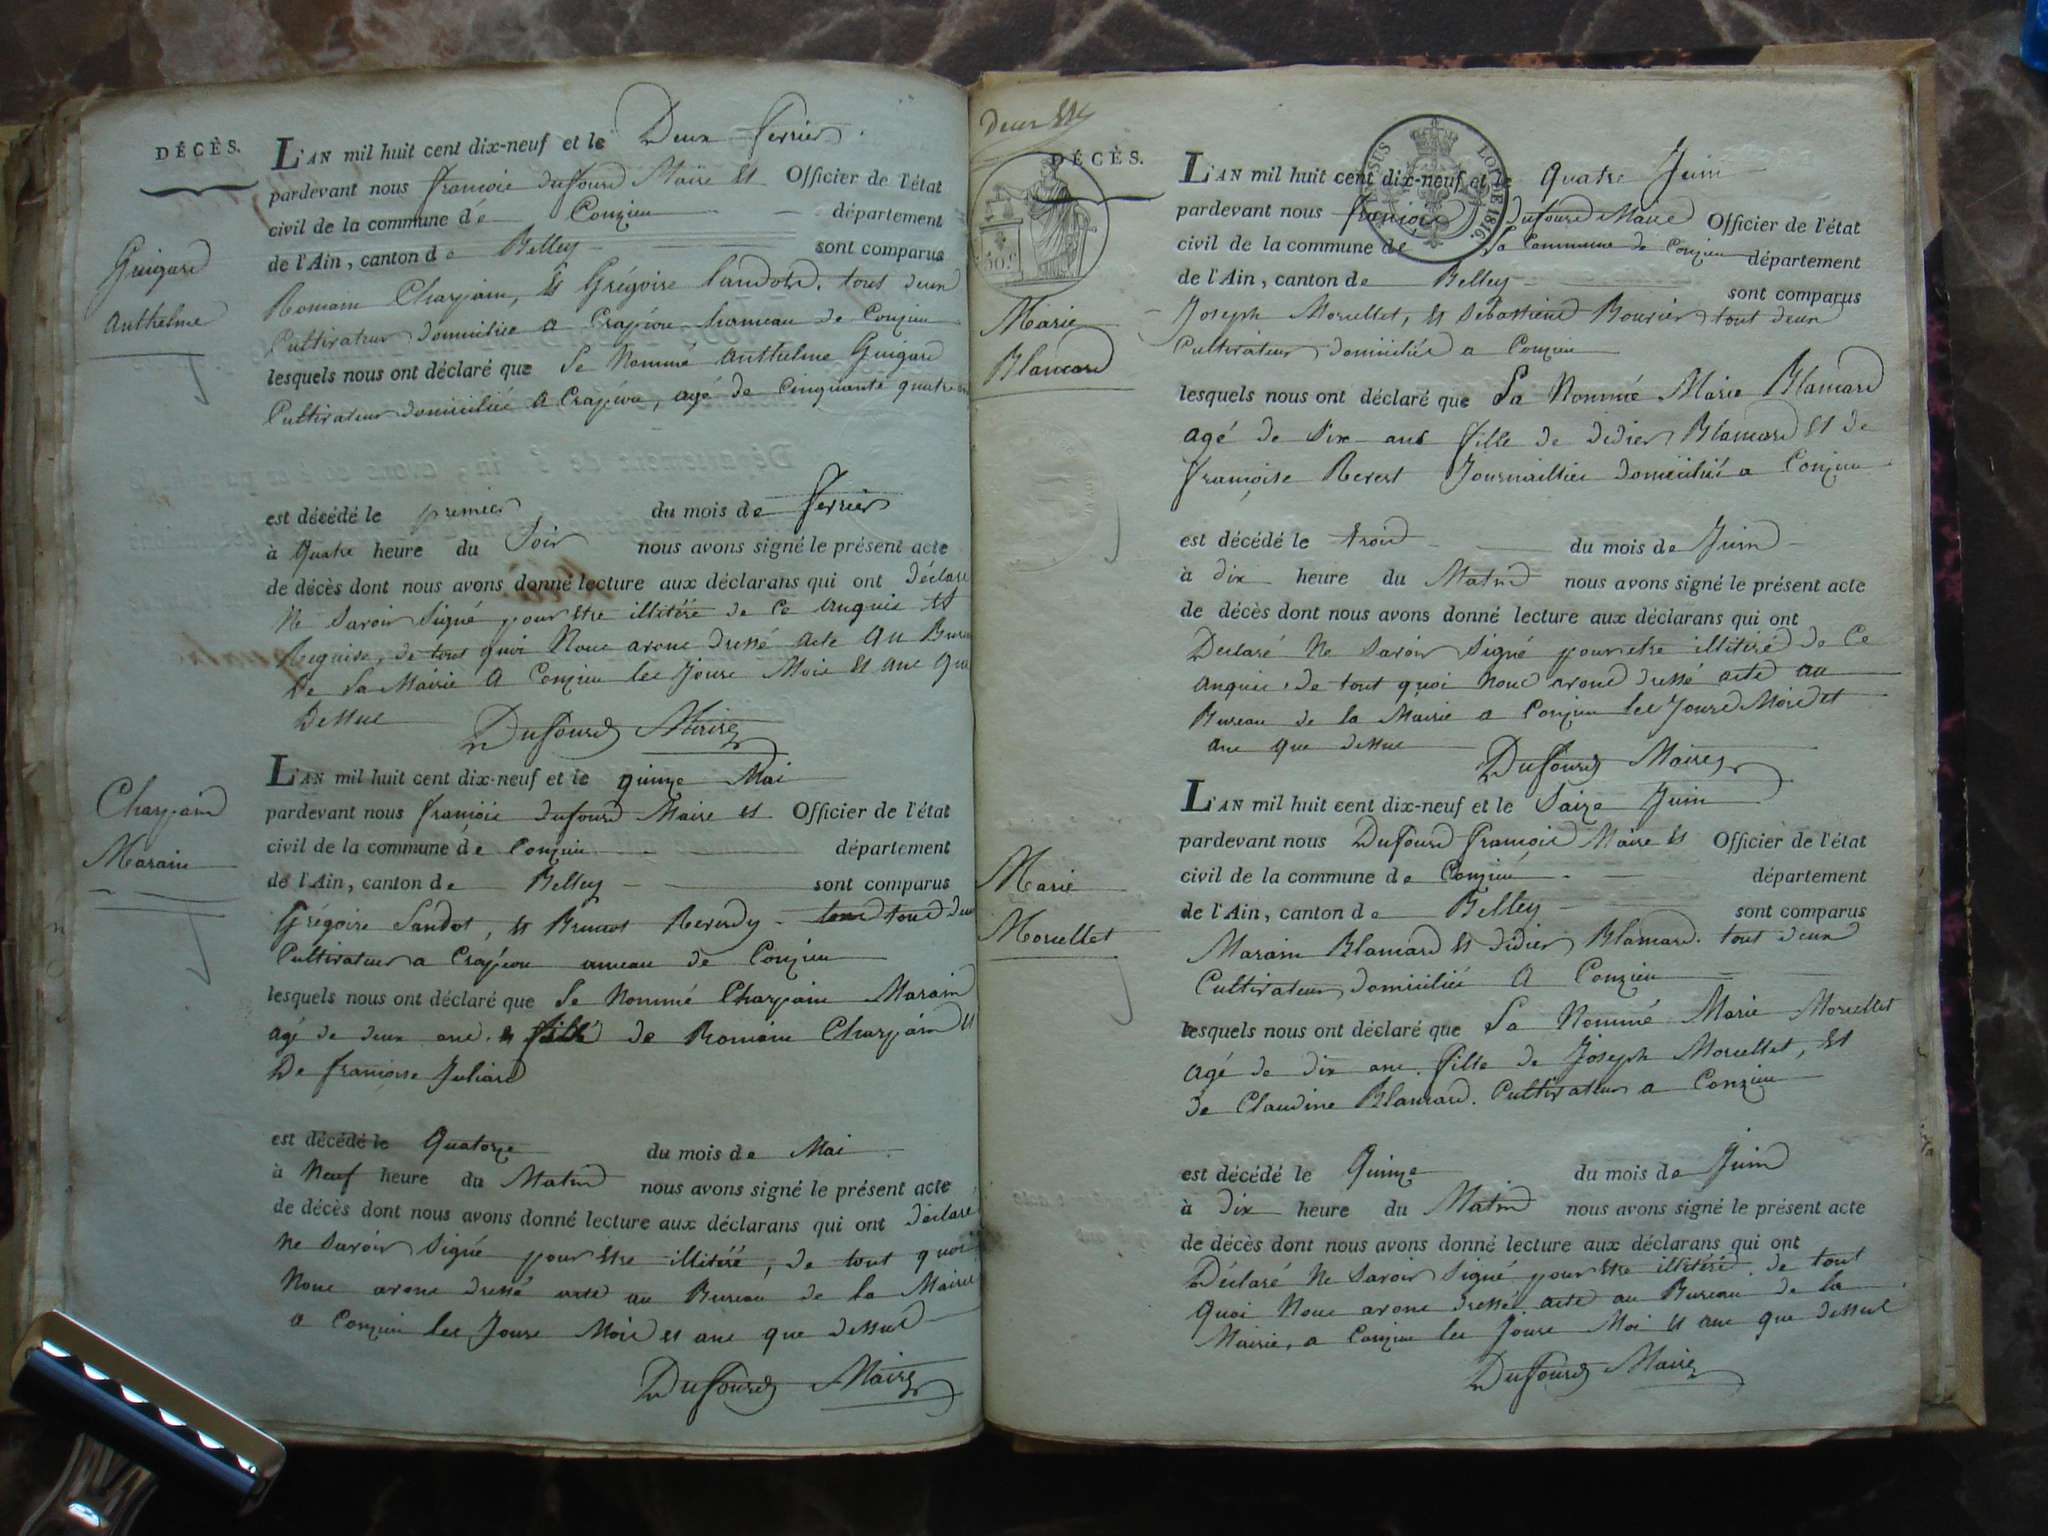 DÉCÈS.
L'AN mil huit cent dix-neuf et le Deux fevrier
pardevant nous françois dufourd Maire Et Officier de l'état
civil de la commune de Conzieu département
de l'Ain, canton de Belley sont comparus
Guigard
Anthelme
Romain Charpain, Et Grégoire Sandod. tout deux
Cultivateur domicilié a Crapéou, hameau de Conzieu
lesquels nous ont déclaré que Le Nommé Anthelme Guigard
Cultivateur domicilié A Crapéou, agé de Cinquante quatre
est décédé le premier du mois de fevrier
à Quatre heure du Soir nous avons signé le présent acte
de décès dont nous avons donné lecture aux déclarans qui ont déclaré
Ne Savoir Signé pour Etre illitéré de Ce Anquis Et
Requise, de tout quoi Nous avons dressé Acte Au Bureau
De La Mairie A Conzieu les Jours Mois Et ans Que
Dessus Dufourd Maire
L'AN mil huit cent dix-neuf et le quinze Mai
pardevant nous françois dufourd Maire Et Officier de l'état
civil de la commune de Conzieu département
de l'Ain, canton de Belley sont comparus
Charpain
Marain
Grégoire Sandot, Et Benoot Reverdy tout deux
Cultivateur a Crapéou ameau de Conzieu
lesquels nous ont déclaré que Le Nommé Charpain Marain
agé de deux ans de Romain Charpain Et
De françoise Juliard
est décédé le Quatorze du mois de Mai
à Neuf heure du Matin nous avons signé le présent acte
de décès dont nous avons donné lecture aux déclarans qui ont déclaré
Ne Savoir Signé pour Etre illitéré, de tout quoi
Nous avons dressé acte au Bureau de la Mairie
a Conzieu les Jours Mois Et ans que dessus
Dufourd Maire
deux
DÉCÈS.
50.c
LOI DE 1816.
L'AN mil huit cent dix-neuf et le Quatre Juin
pardevant nous françois dufourd Maire Officier de l'état
civil de la commune de La Commune de Conzieu département
de l'Ain, canton de Belley sont comparus
Marie
Blancard
Joseph Morellet, Et Sebastiend Bouvier tout deux
Cultivateur domicilié a Conzieu
lesquels nous ont déclaré que La Nommé Marie Blancard
agé de Six ans fille de didier Blancard Et de
françoise Revert Journaillier domicilié a Conzieu
est décédé le troid du mois de Juin
à dix heure du Matin nous avons signé le présent acte
de décès dont nous avons donné lecture aux déclarans qui ont
Déclaré Ne Savoir Signé pour etre illitéré de Ce
anquis, de tout quoi Nous avons dressé acte au
Bureau de la Mairie a Conzieu les Jours Mois et
ans que dessus Dufourd Maire
L'AN mil huit cent dix-neuf et le Saize Juin
pardevant nous Dufourd françois Maire Et Officier de l'état
civil de la commune de Conzieu département
de l'Ain, canton de Belley sont comparus
Marie
Morellet
Marain Blancard Et didier Blancard. tout deux
Cultivateur domicilié A Conzieu
lesquels nous ont déclaré que La Nommé Marie Morellet
agé de dix ans. fille de Joseph Morellet, Et
de Claudine Blancard. Cultivateur a Conzieu
est décédé le Quinze du mois de Juin
à dix heure du Matin nous avons signé le présent acte
de décès dont nous avons donné lecture aux déclarans qui ont
Déclaré Ne Savoir Signé pour Etre illitéré. de tout
Quoi Nous avons dressé acte au Bureau de la
Mairie, a Conzieu les Jours Moi Et ans que dessus
Dufourd Maire